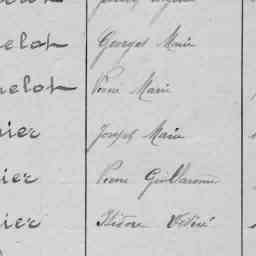 elot Georges Marie
elot Pierre Marie
nier Joseph Marie
nier Pierre Guillaume
nier Isidore